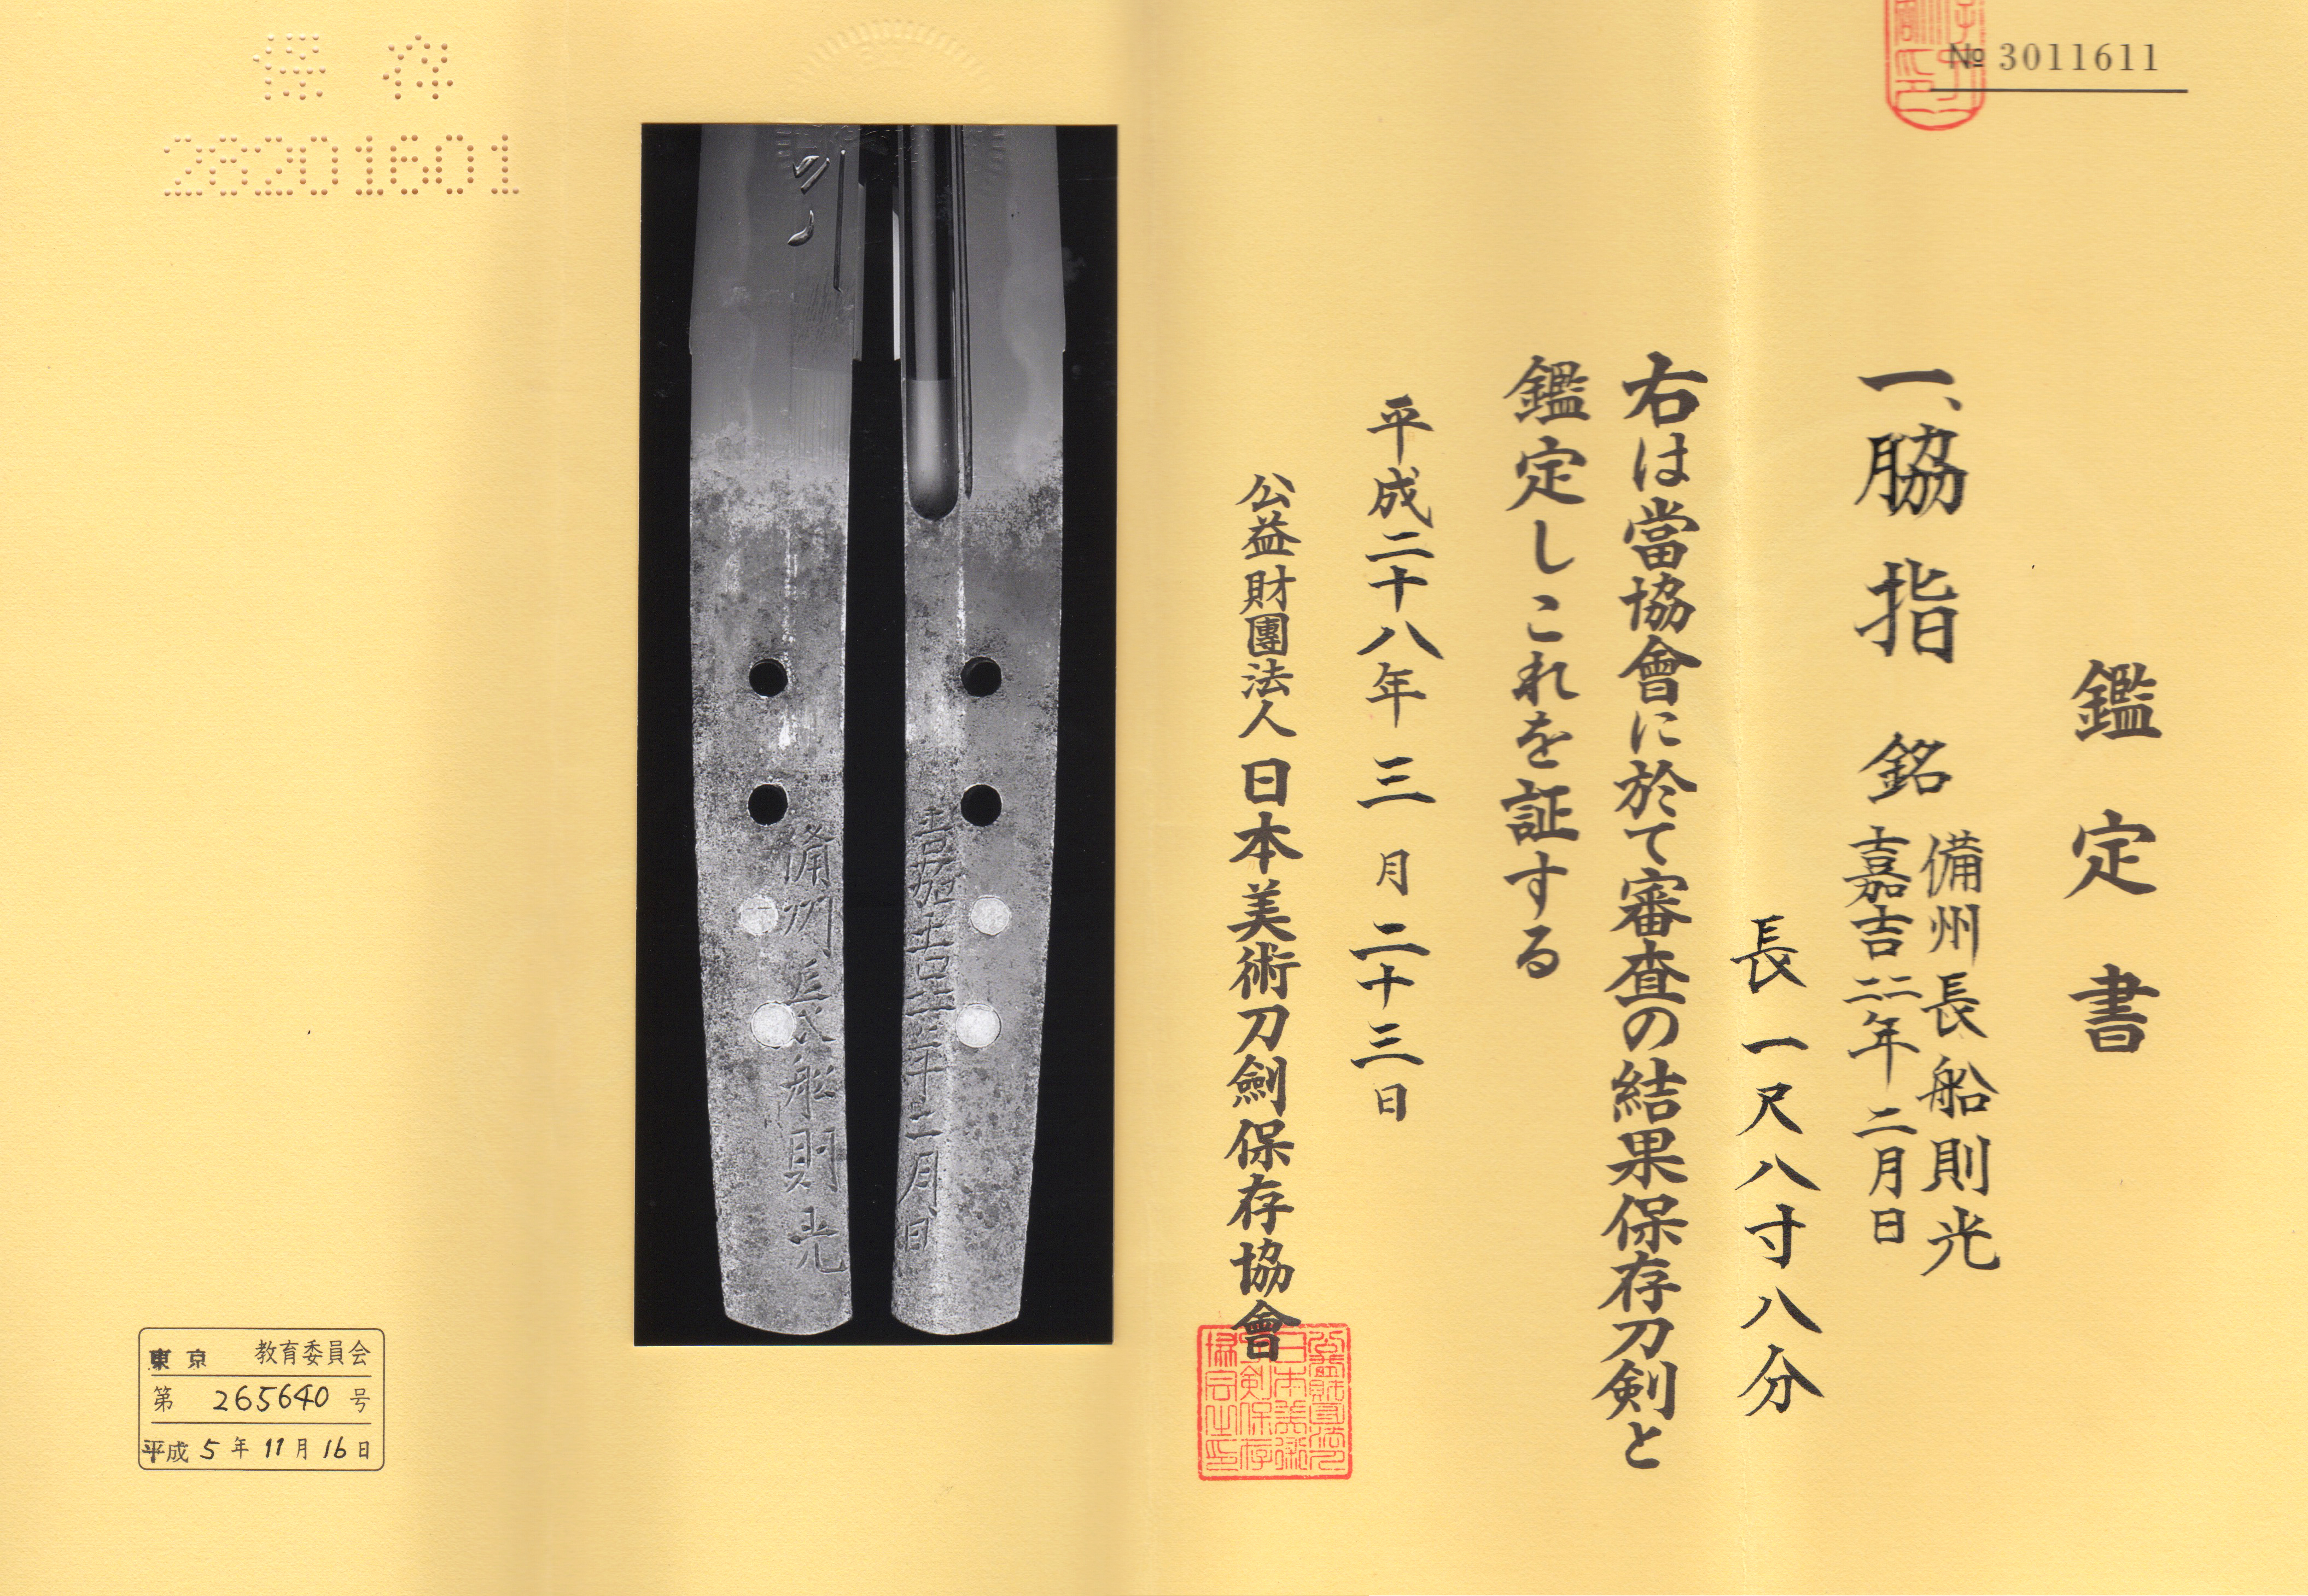 № 3011611
鑑定書
一、脇指 銘 備州長船則光
嘉吉二二年二月日
長一尺八寸八分
右は當協會に於て審査の結果保存刀剣と
鑑定しこれを証する
平成二十八年三月二十三日
公益財團法人日本美術刀劍保存協會
備州長船則光
保存
28201601
東京 教育委員会
第 265640 号
平成 5 年 11 月 16 日